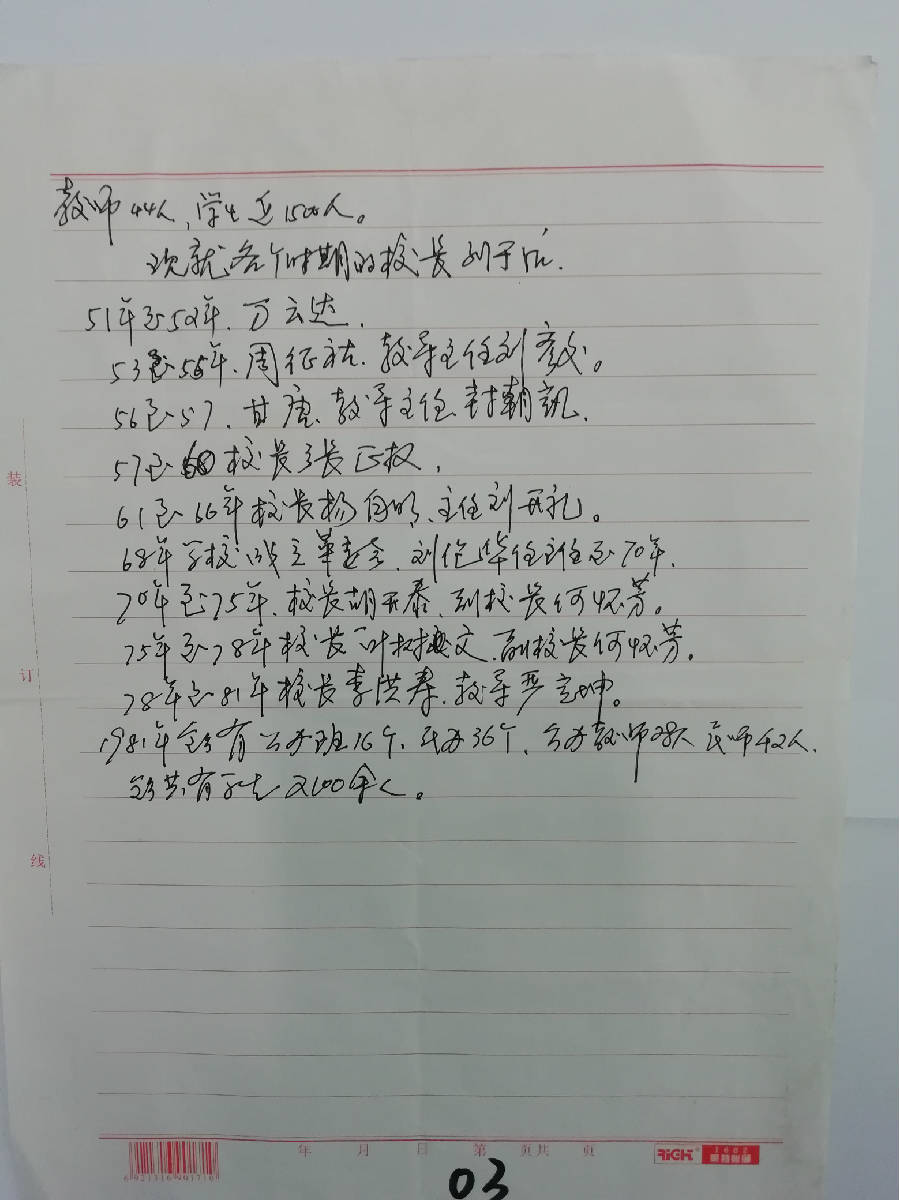 教师44人,学生近1500人。
现就各个时期的校长列于后.
51年至52年.万云达.
53至55年.周征祜.教导主任刘彦。
56至57.甘唐.教导主任封朝凯.
57至60校长张正权,
61至66年校长杨自明、主任刘开礼。
68年学校成立革委会.刘纪华任主任至70年.
70年至75年.校长胡开泰.副校长何怀芳。
75年至78年校长叶树文.副校长何怀芳。
78年至81年校长李洪寿.教导严定坤。
1981年全乡有公办班16个,民办36个,公办教师28人民师42人.
全乡共有学生2100余人。
装
订
线
年 月 日 第 页共 页
RIGH
03